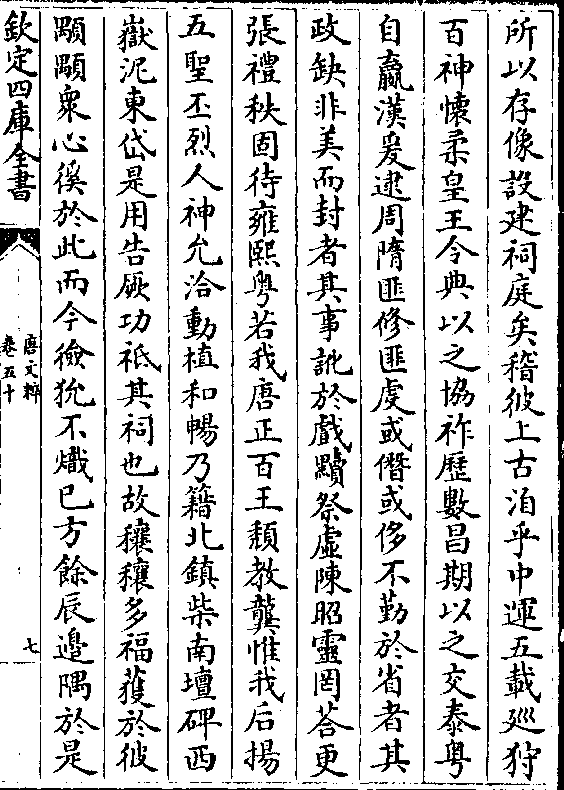 所以存像設建祠庭矣稽彼上古洎乎中運五載廵狩
百神懷柔皇王令典以之協祚歴數昌期以之交泰粤
自嬴漢爰逮周隋匪修匪虔或僭或侈不勤於省者其
政缺非美而封者其事訛於戲黷祭虚陳昭靈罔荅更
張禮秩固待雍熙粤若我唐正百王頽教龔惟我后揚
五聖丕烈人神允洽動植和暢乃籍北鎮柴南壇碑西
嶽泥東岱是用告厥功祗其祠也故穰穰多福蒦於彼
顒顒衆心徯於此而今獫狁不熾巳方餘辰邉隅於是
欽定四庫全書
唐文粹
卷五十
七